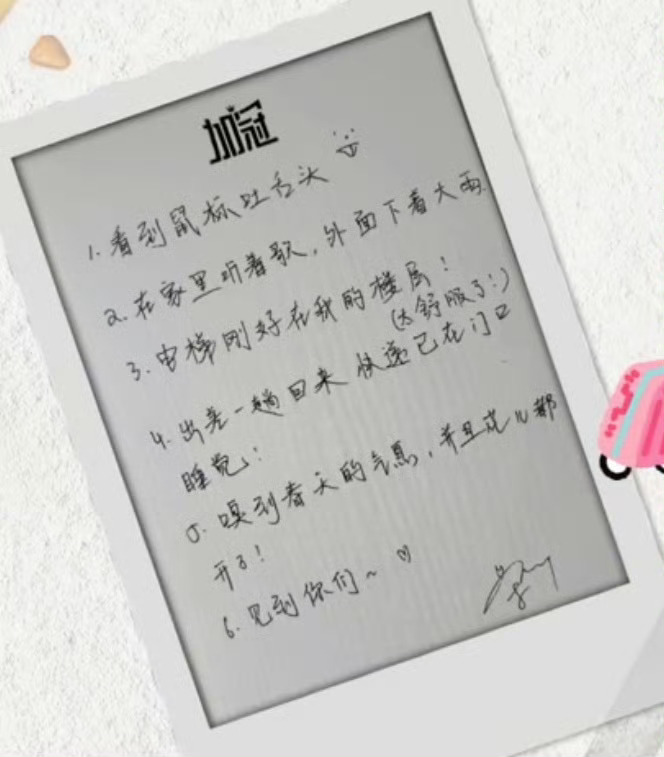 加冠
1. 看到鼠标吐舌头
2. 在家里听着歌，外面下着大雨.
3. 电梯刚好在我的楼层！
(太舒服了!)
4. 出差一趟回来 快递已在门口
睡觉！
5. 嗅到春天的气息，并且花儿都
开了！
6. 见到你们~ ♡